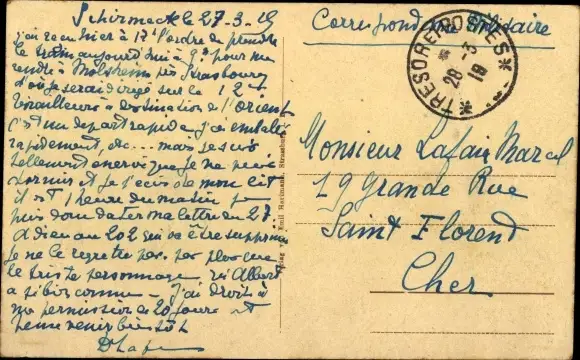 Schirmeck le 27-3-19
j'ai reçu hier à 17h l'ordre de prendre
le train aujourd'hui à 9h pour me
rendre à Molsheim près Strasbourg
d'où je serai dirigé sur le 12e
tirailleurs à destination de l'Orient
c'est un départ rapide j'ai emballé
rapidement, etc... mais je suis
tellement énervé que je ne puis
dormir et je t'écris de mon lit
il est 1 heure du matin je
puis donc dater ma lettre du 27.
Adieu au 202 qui va être supprimé
je ne le regrette pas. pas plus que
le triste personnage qu'Albert
a si bien connu - j'ai droit à
ma permission de 20 jours et
pense venir bientôt
Correspondance Militaire
*TRESOR ET POSTES*
28 -3
19
Monsieur Lafaix Marcel
19 Grande Rue
Saint Florent
Cher
Emil Hartmann, Strassburg